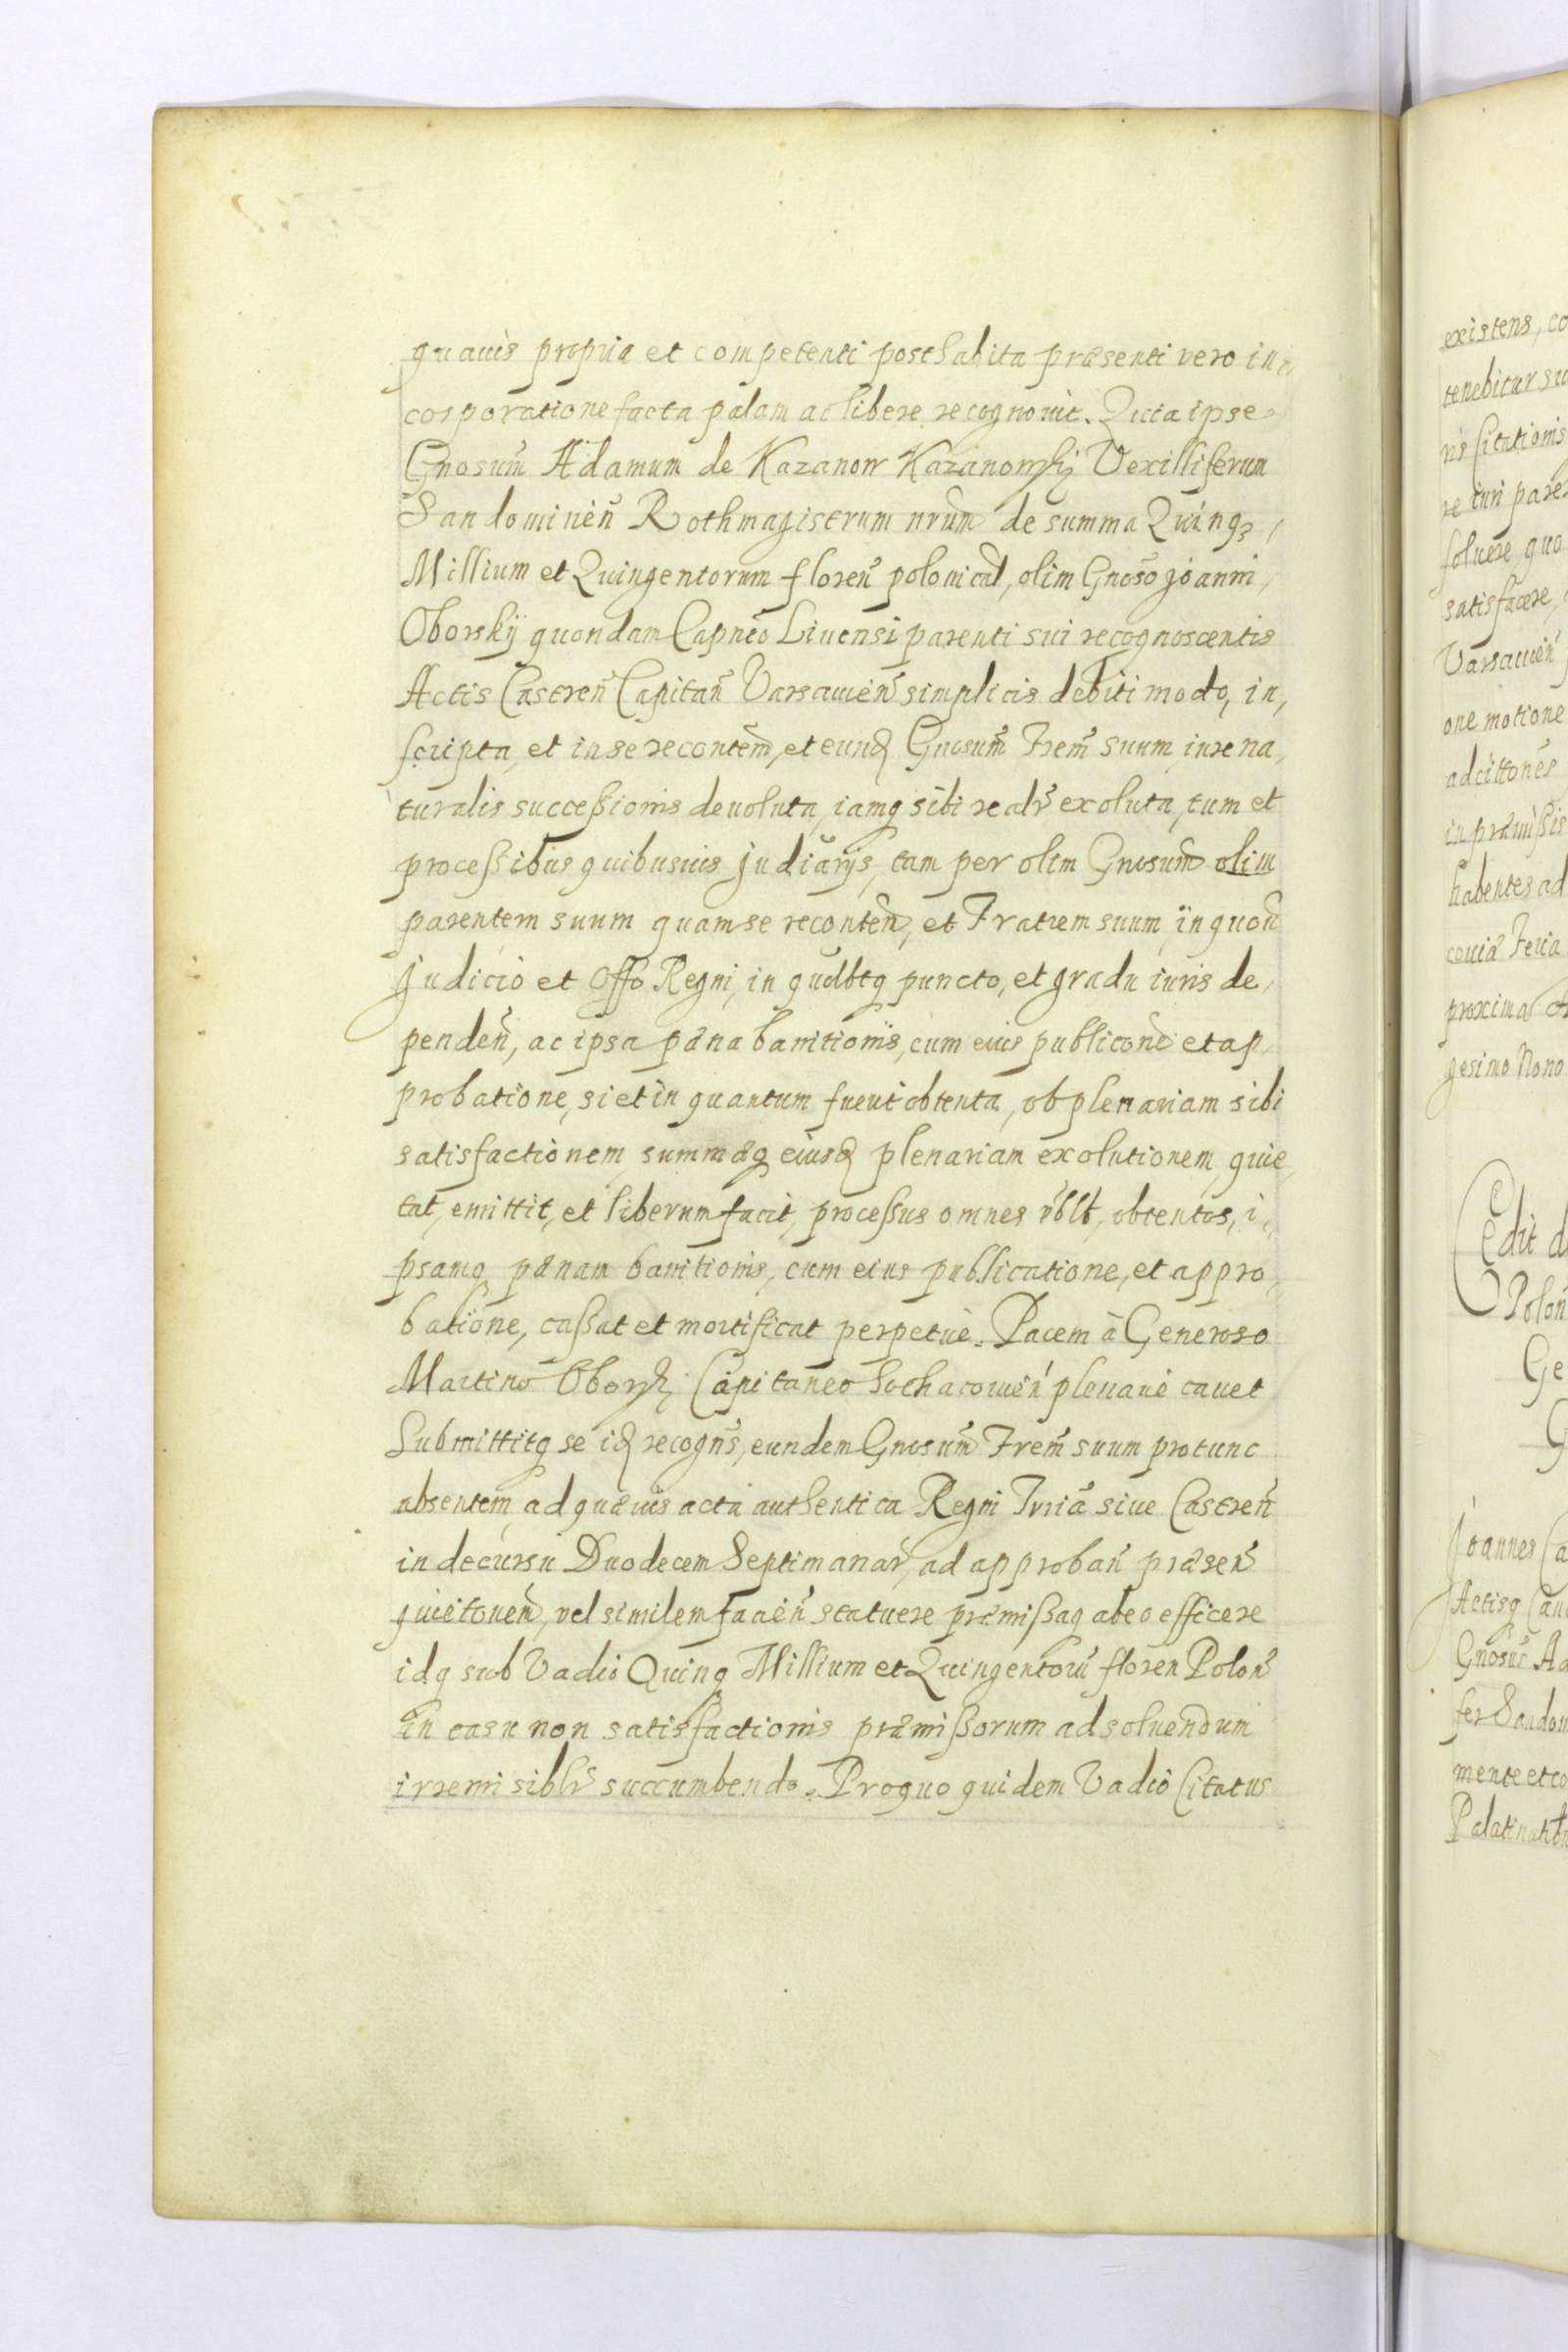 quauis propria et competenti posthabita præsenti vero in
corporatione facta palam ac libere recognouit. Quia ipse
Gnosum̃ Adamum de Kazanow Kazanowskj Vexilliferum
Sandominen̄ Rothmagistrum nrum̃ de summa Quinqȝ
Millium et Quingentorum floren̄ polonical, olim Gnoso Joanni
Oborskÿ quondam Capneo Liuensi parenti sui recognoscentis
Actis Castren̄ Capitan̄ Varsauien̄ simplicis debiti modo, in,
scripta, et in se recontem̃, et eund Gnosum̃ Frem̃ suum, iure na,
turalis successionis deuoluta, iamq sibi realr̃ exoluta, tum et
processibus quibusuis Judiarÿs, tam per olim Gnosum̃ olim
parentem suum quam se reconten̄, et Fratrem suum, in quou
Judicio et Offo Regni, in quolbtq puncto, et gradu iuris de,
penden̄, ac ipsa pæna banitionis, cum eius publicone et ap,
probatione, si et in quantum fuerit obtenta, ob plenariam sibi
satisfactionem summæq eiusd plenariam exolutionem, quie,
tat, emittit, et liberum facit, processus omnes vblt, obtentos, i,
psamq pænam banitionis, cum eius publicatione, et appro,
batione, cassat et mortificat perpetue. Pacem à Generoso
Martino Oborskj Capitaneo Sochacouien̄ plenarie cauet
Submittitq se id recogns̃, eundem Gnosum̃ Frem̃ suum pro tunc
absentem ad quæuis acta authentica Regni Trria siue Castren̄
in decursu Duodecem Septimanar̃, ad approban̄ præsen̄
quietonem̃, vel similem facien̄ statuere præmissaq ab eo efficere
idq sub Vadio Quinq Millium et Quingentoru floren Polon̄
in casu non satisfactionis præmissorum ad soluendum
irremisiblr̃ succumbendo. Pro quo quidem Vadio Citatus
existens, co
tenebitur su
ris Citationis
re iuri pare
soluere quo
satisfacere,
Varsauien̄
one motione
ad cittones
in præmissis
habentes ad
Feria
proxima
gesimo Nono
Cedit d
Polon̄
Ge
G
Joannes Ca
Actisq
Gnosus̃ Ad
fer Sandom
mente et co
Palatinatu